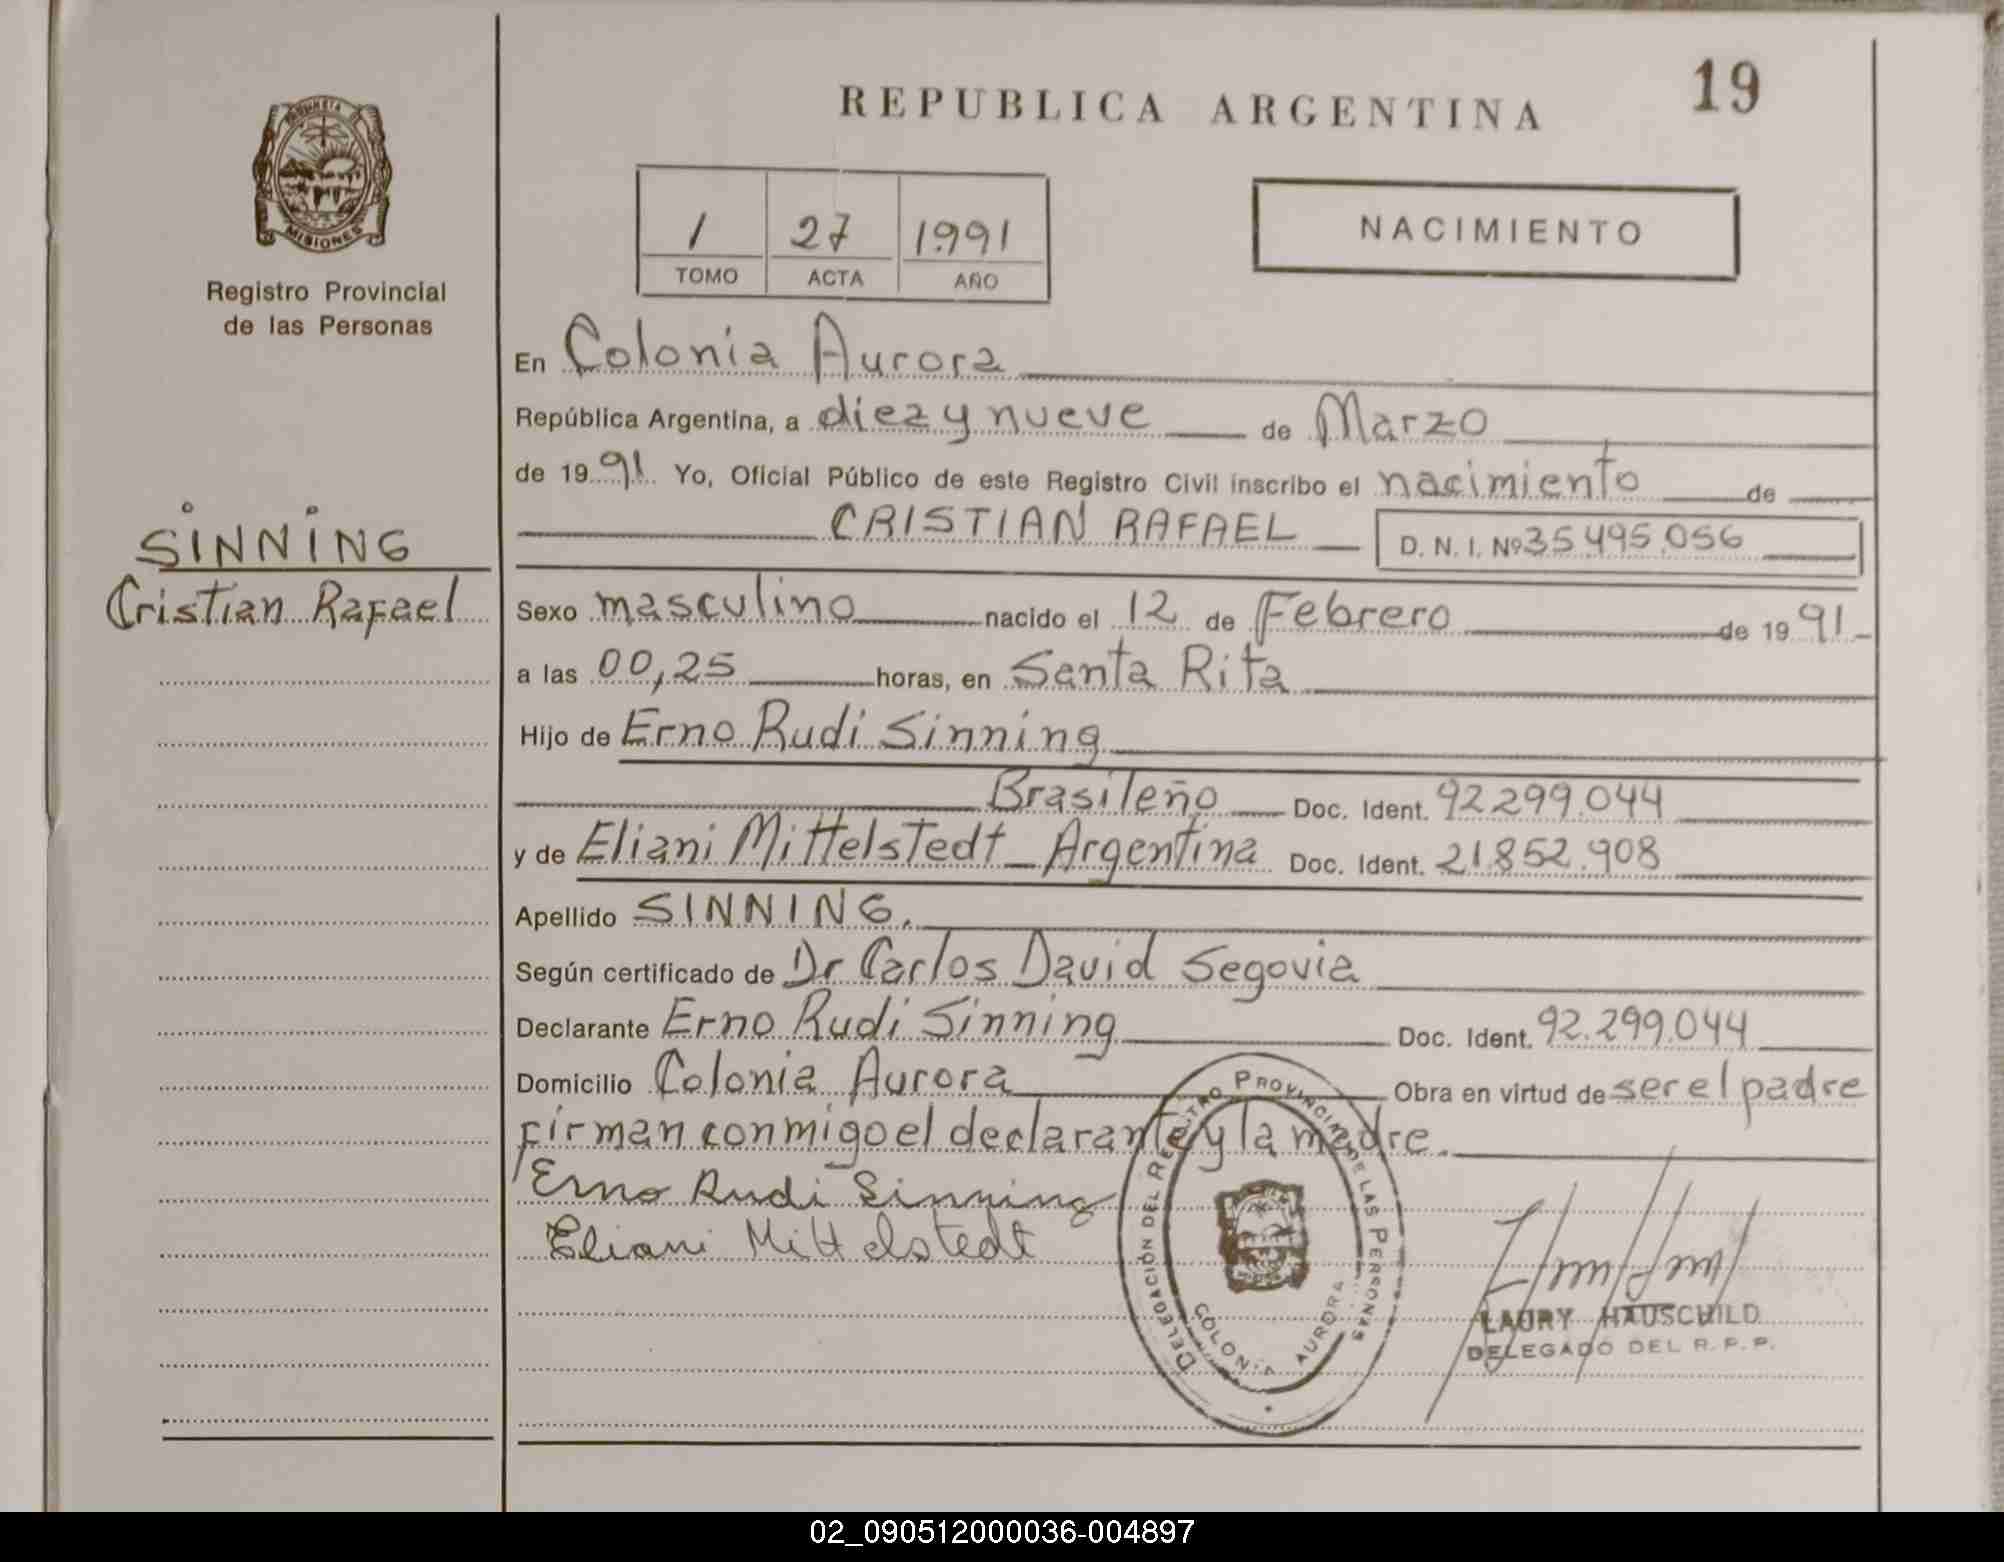 19
REPUBLICA ARGENTINA
MISIONES
Registro Provincial
de las Personas
1 27 1991
TOMO ACTA AÑO
NACIMIENTO
En Colonia Aurora
República Argentina, a diez y nueve de Marzo
de 1991 Yo, Oficial Público de este Registro Civil inscribo el nacimiento de
SINNING
Cristian Rafael
CRISTIAN RAFAEL D. N. I. Nº 35.495.056
Sexo masculino nacido el 12 de Febrero de 1991
a las 00,25 horas, en Santa Rita
Hijo de Erno Rudi Sinning
Brasileño Doc. Ident. 92.299.044
y de Eliani Mittelstedt - Argentina Doc. Ident. 21.852.908
Apellido SINNING.
Según certificado de Dr Carlos David Segovia
Declarante Erno Rudi Sinning Doc. Ident. 92.299.044
Domicilio Colonia Aurora Obra en virtud de ser el padre
firman conmigo el declarante y la madre.
Erno Rudi Sinning
Eliani Mittelstedt
DELEGACIÓN DEL REGISTRO PROVINCIAL DE LAS PERSONAS
COLONIA AURORA
LAURY HAUSCHILD
DELEGADO DEL R. P. P.
02_090512000036-004897